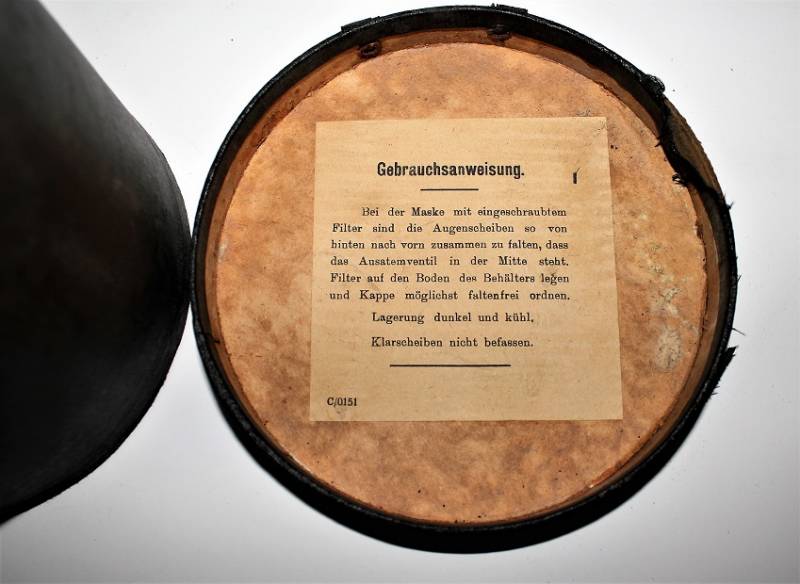 Gebrauchsanweisung.
Bei der Maske mit eingeschraubtem
Filter sind die Augenscheiben so von
hinten nach vorn zusammen zu falten, dass
das Ausatemventil in der Mitte steht.
Filter auf den Boden des Behälters legen
und Kappe möglichst faltenfrei ordnen.
Lagerung dunkel und kühl.
Klarscheiben nicht befassen.
C/0151